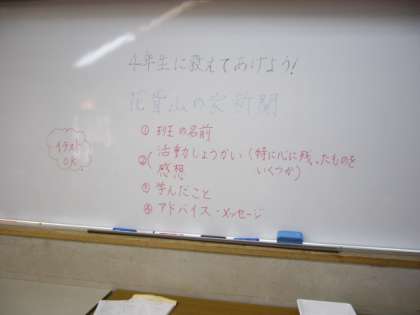 4年生に教えてあげよう!
花背山の家新聞
① 班の名前
② 活動しょうかい (特に心に残ったものを
いくつか)
感想
③ 学んだこと
④ アドバイス・メッセージ
イラスト
OK